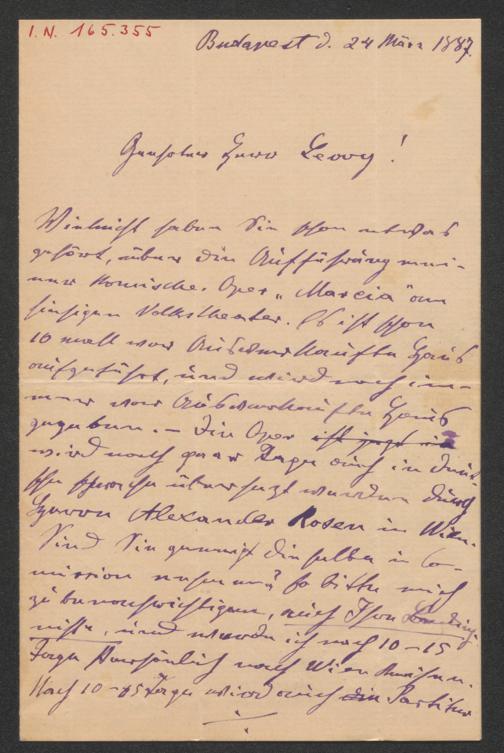 I.N. 165.355
Budapest d. 24 März 1887.
Geehrter Herr Lewy!
Vieleicht haben Sie schon etwas
gehört, über die Aufführung mei-
ner Komische Oper „Marcia" am
hiesigen Volkstheater. Es ist schon
10 mall vor Ausverkaufte Haus
aufgeführt, und wird noch im-
mer vor Ausverkaufte Haus
gegeben. – Die Oper ist jetzt
wird nach paar Tage auch in Deut-
sche Sprache übersetzt werden durch
Herrn Alexander Rosen in Wien.
Sind Sie geneigt dieselbe in Co-
mission nehmen? so bitte mich
zu benachrichtigen, auch Ihre Beding-
niße, und werde ich nach 10–15
Tage Persönlich nach Wien kommen.
Nach 10–15 Tage wird auch die Partitur